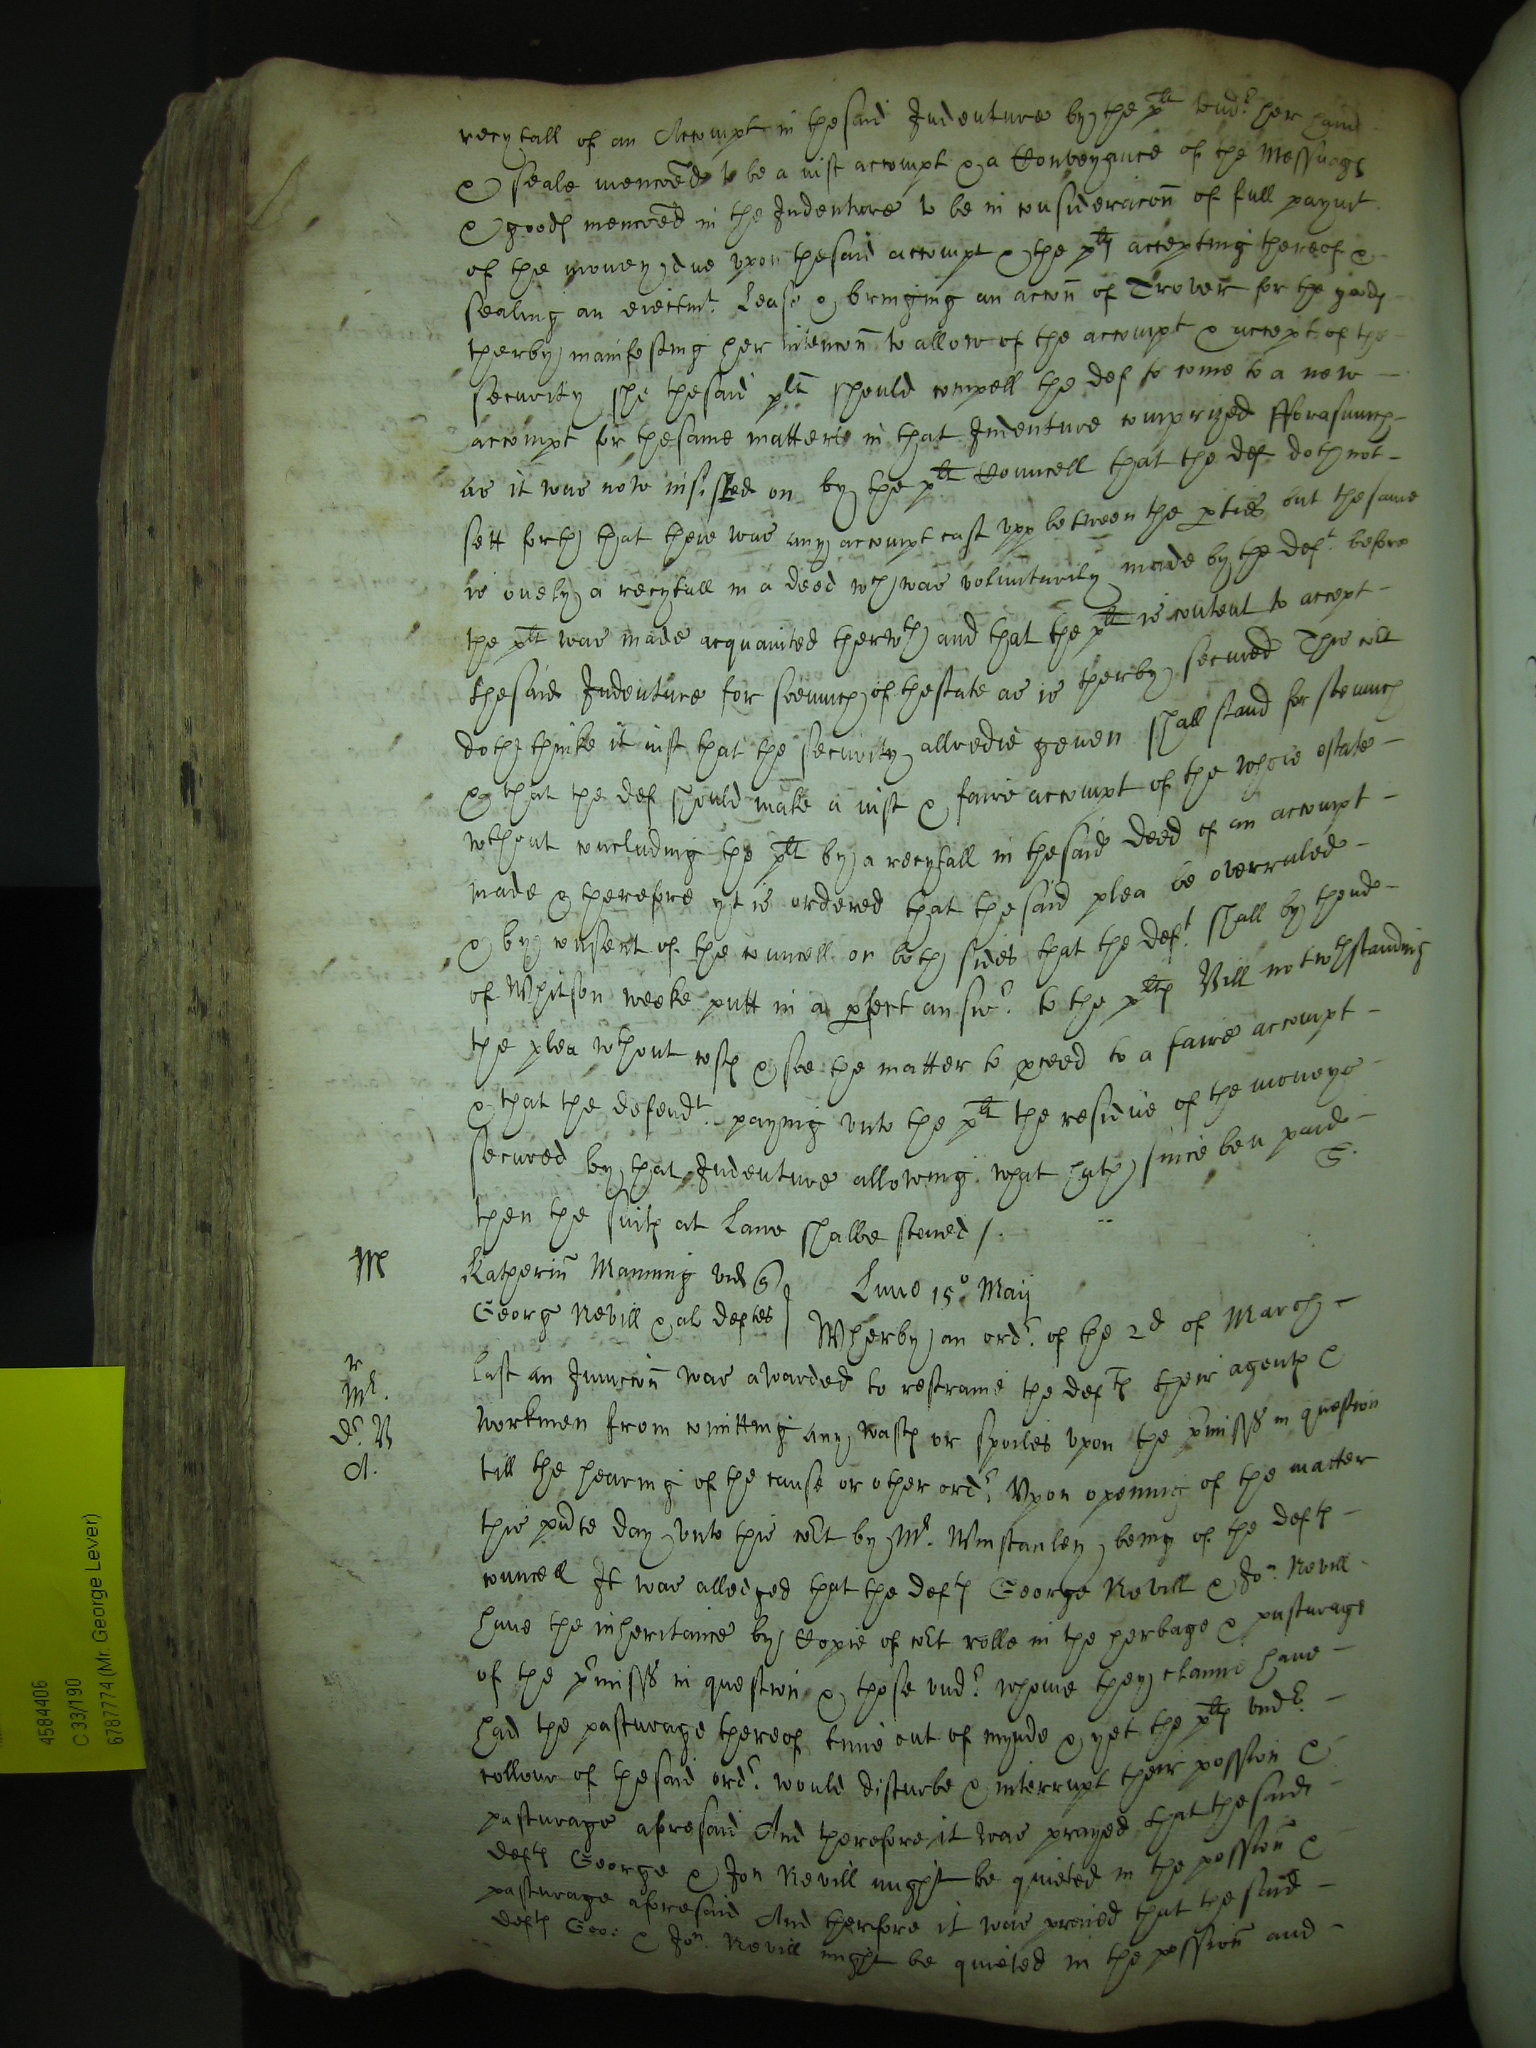 recytall of an Accompt in thesaid Indenture by the plt undr her hand
& seale mencoed to be a iust accompt & a Conveyance of the Messuags
& goods mencoed in the Indenture to be in consideracon of full paymt
of the money due upon thesaid accompt & the plts accepting thereof &
sealing an eiectmt Lease & bringing an accon of Trover for the goods
therby manifesting her intencon to allow of the accompt & accept of the
security she thesaid plt should compell the def to come to a new
accompt for thesame matters in that Indenture comprized fforasmuch
as it was now insisted on by the plts Councell that the def doth not
sett forth that there was any accompt cast upp between the pties but thesame
is onely a recytall in a deed wch was voluntarily made by the deft before
the plt was made acquainted therwth and that the plt is content to accept
thesaid Indenture for soemuch of thestate as is therby secured This cort
doth thinke it iust that the security allredie geven shall stand for soemuch
& that the def should make a iust & faire accompt of the whole estate
wthout concluding the plt by a recytall in thesaid deed of an accompt
made & therefore yt is ordered that the said plea be overruled
& by consent of the councell on both sides that the deft shall by thend
of Whitson weeke putt in a pfect answr to the plts Bill notwthstanding
the plea wthout costs & soe the matter to pceed to a faire accompt
& that the defendt paying unto the plt the residue of the moneys
secured by that Indenture allowing what hath since ben paid
then the suits at Lawe shalbe staied /.
G.
M
Katherin Manning vid
Georg Nevill & al deftes
Lune 15o Maij
Wherby an ordr of the 2d of March
r
Mr.
Dr. B
A.
last an Iniuncon was awarded to restraine the defts their agents &
workmen from comitting any wasts or spoiles upon the pmisss in question
till the hearing of the cause or other ordr Upon opening of the matter
this psite day unto this cort by Mr. Winstanley being of the defts
councell It was alledged that the defts George Nevill & Jon Nevill
have the inheritance by Copie of cort rolle in the herbage & pasturage
of the pmisss in question & those undr whome they claime have
had the pasturage thereof time out of mynde & yet the plts undr
collour of thesaid ordr would disturbe & interrupt their possion &
pasturage aforesaid And therefore it was prayed that thesaid
defts George & Jon Nevill might be quieted in the possion &
pasturage aforesaid And therfore it was praied that the said
defts Geo: & Jon. Nevill might be quieted in the possion and
4584406
C 33/190
6787774 (Mr. George Lever)